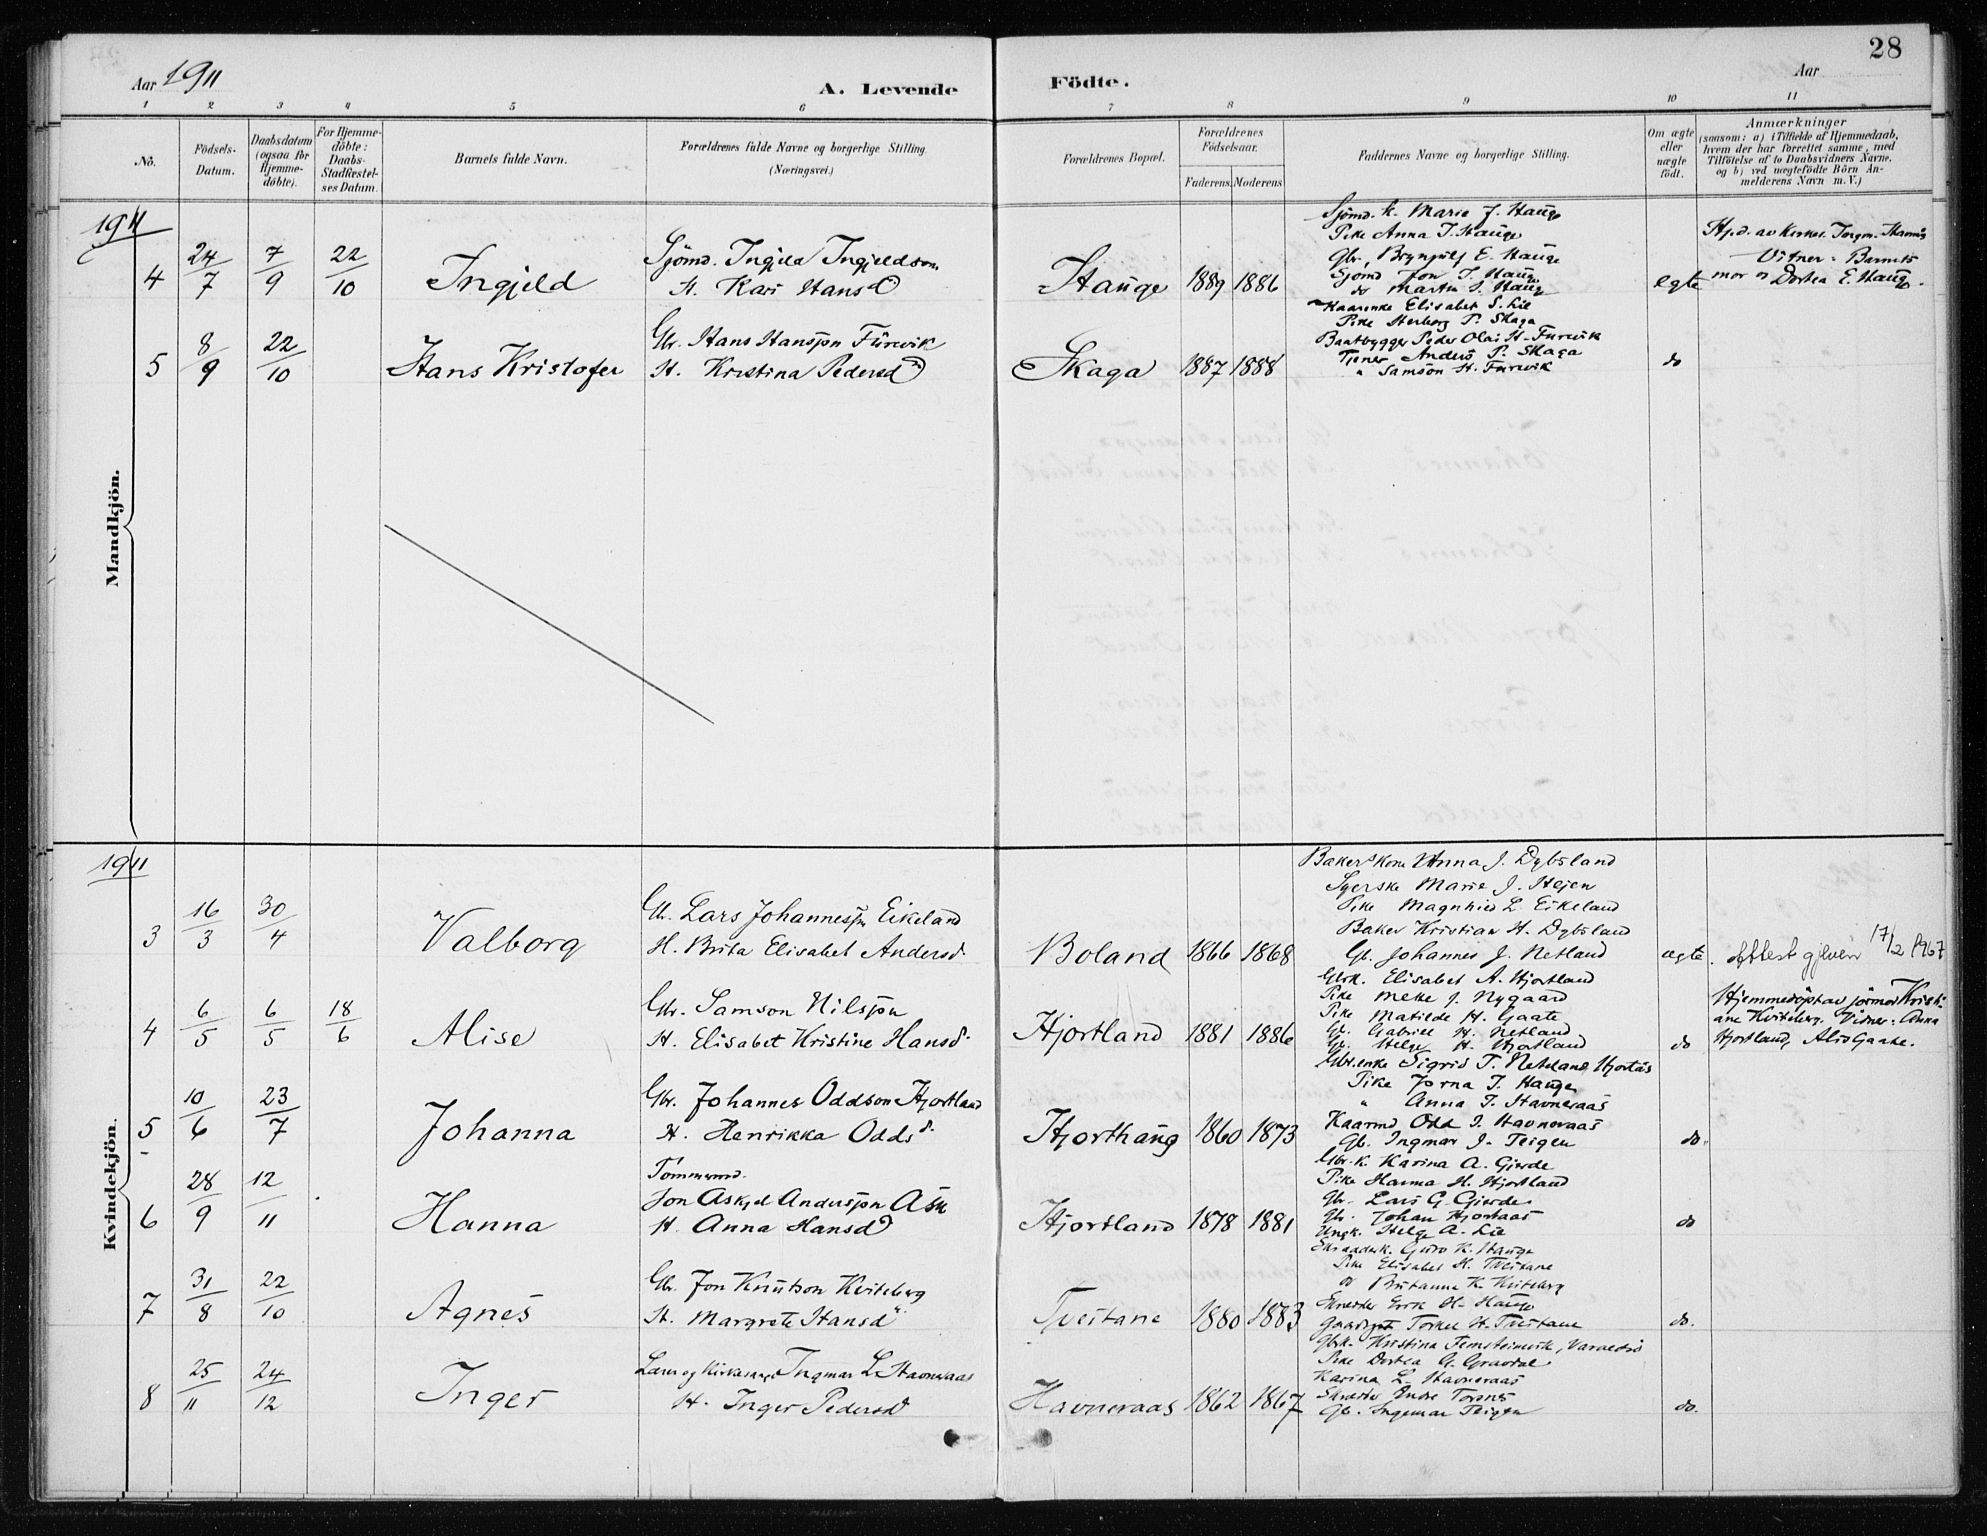 28
Aar 1911
A. Levende Födte.
Aar
1 2 3 4 5 6 7 8 9 10 11
No.
Födsels-Datum.
Daabsdatum (ogsaa for Hjemme-döbte).
For Hjemme-döbte: Daabs-Stadfæstel-ses Datum.
Barnets fulde Navn.
Forældrenes fulde Navne og borgerlige Stilling. (Næringsvei.)
Forældrenes Bopæl.
Forældrenes Födselsaar.
Faderens. Moderens
Faddernes Navne og borgerlige Stilling.
Om ægte eller uægte födt.
Anmærkninger
(saasom: a) i Tilfælde af Hjemmedaab,
hvem der har forrettet samme, med
Tilföielse af to Daabsvidners Navne,
og b) ved uægtefödte Börn An-
melderens Navn m. V.)
Mandkjön.
1911
4 24/7 7/9 22/10 Ingjeld
Sjömd. Ingjeld Ingjeldson
H. Kari Hansd
Hauge 1889 1886
Sjömd. k. Marie J. Hauge
Pike Anna I. Hauge
Gbr. Brynjulf E. Hauge
Sjömd Jon I. Hauge
do Martin S. Haug
egte
Vitner: Barnets
mor og Dortea E. Haug.
5 8/9 22/10 Hans Kristofer
Gbr. Hans Hansson Furevik
H. Kristina Pedersd
Skaga 1887 1888
Kaarenke Elisabet S. Lie
Pike Herborg P. Skaga
Baatbygger Peder Olai H. Furevik
Tjener Anders P. Skaga
" Samson H. Furevik
do
Kvindekjön.
1911
3 16/3 30/4 Valborg
Gbr. Lars Johannesson Eikeland
H. Brita Elisabet Andersd.
Boland 1866 1868
Bakerskone Anna J. Dybsland
Syerske Marie J. Hejen
Pike Magnhild L. Eikeland
Baker Kristian H. Dybsland
Gb. Johannes J. Netland
ægte. Attest gjeven 17/2 1967
4 6/5 6/5 18/6 Alise
Gbr. Samson Nilsson
H. Elisabet Kristine Hansd.
Hjortland 1881 1886
Gbrk. Elisabet A. Hjortland
Pike Melke J. Nygaard
Pike Matilde H. Gaate
Gb. Gabriel H. Netland
Gb. Helge H. Hjortland
do
Hjemmedöpt av jormor Kristi-
ane Kviteberg. Vidner: Anna
Hjortland, Alis Gaate.
5 10/6 23/7 Johanna
Gbr. Johannes Oddson Hjortland
H. Henrikka Oddsd.
Hjorthaug 1860 1873
Gbr.enke Sigrid T. Neteland, Hjortås
Pike Jorna I. Hauge
" Anna I. Havneraas
Kaarmd Odd I. Havneraas
Gb. Ingmar J. Teigen
do
6 28/9 12/11 Hanna
Tömmermd.
Jon Askjel Andersson Ase
H. Anna Hansd
Hjortland 1878 1881
Gbr. k. Karina A. Gjerde
Pike Hanna H. Hjortland
Gb. Lars G. Gjerde
Gb. Johan Hjortaas
Ungk. Helge A. Lie
do
7 31/8 22/10 Agnes
Gbr. Jon Knutson Kviteberg
H. Margrete Hansd
Tveitane 1880 1883
Guro K. Hauge
Pike Elisabet H. Tveitane
do Britanna K. Kviteberg
Skredder Eirik H. Hauge
Torkel H. Tveitane
do.
8 25/11 24/12 Inger
Lærer og Kirkesanger Ingmar L. Havneraas
H. Inger Pedersd
Havneraas 1862 1867
Gbrk. Kristina Femsteinvik, Varaldsö
Pike Dortea G. Gravdal
Karina L. Havneraas
Skredder Andre Torsnes
Gb. Ingemar Teigen
do.